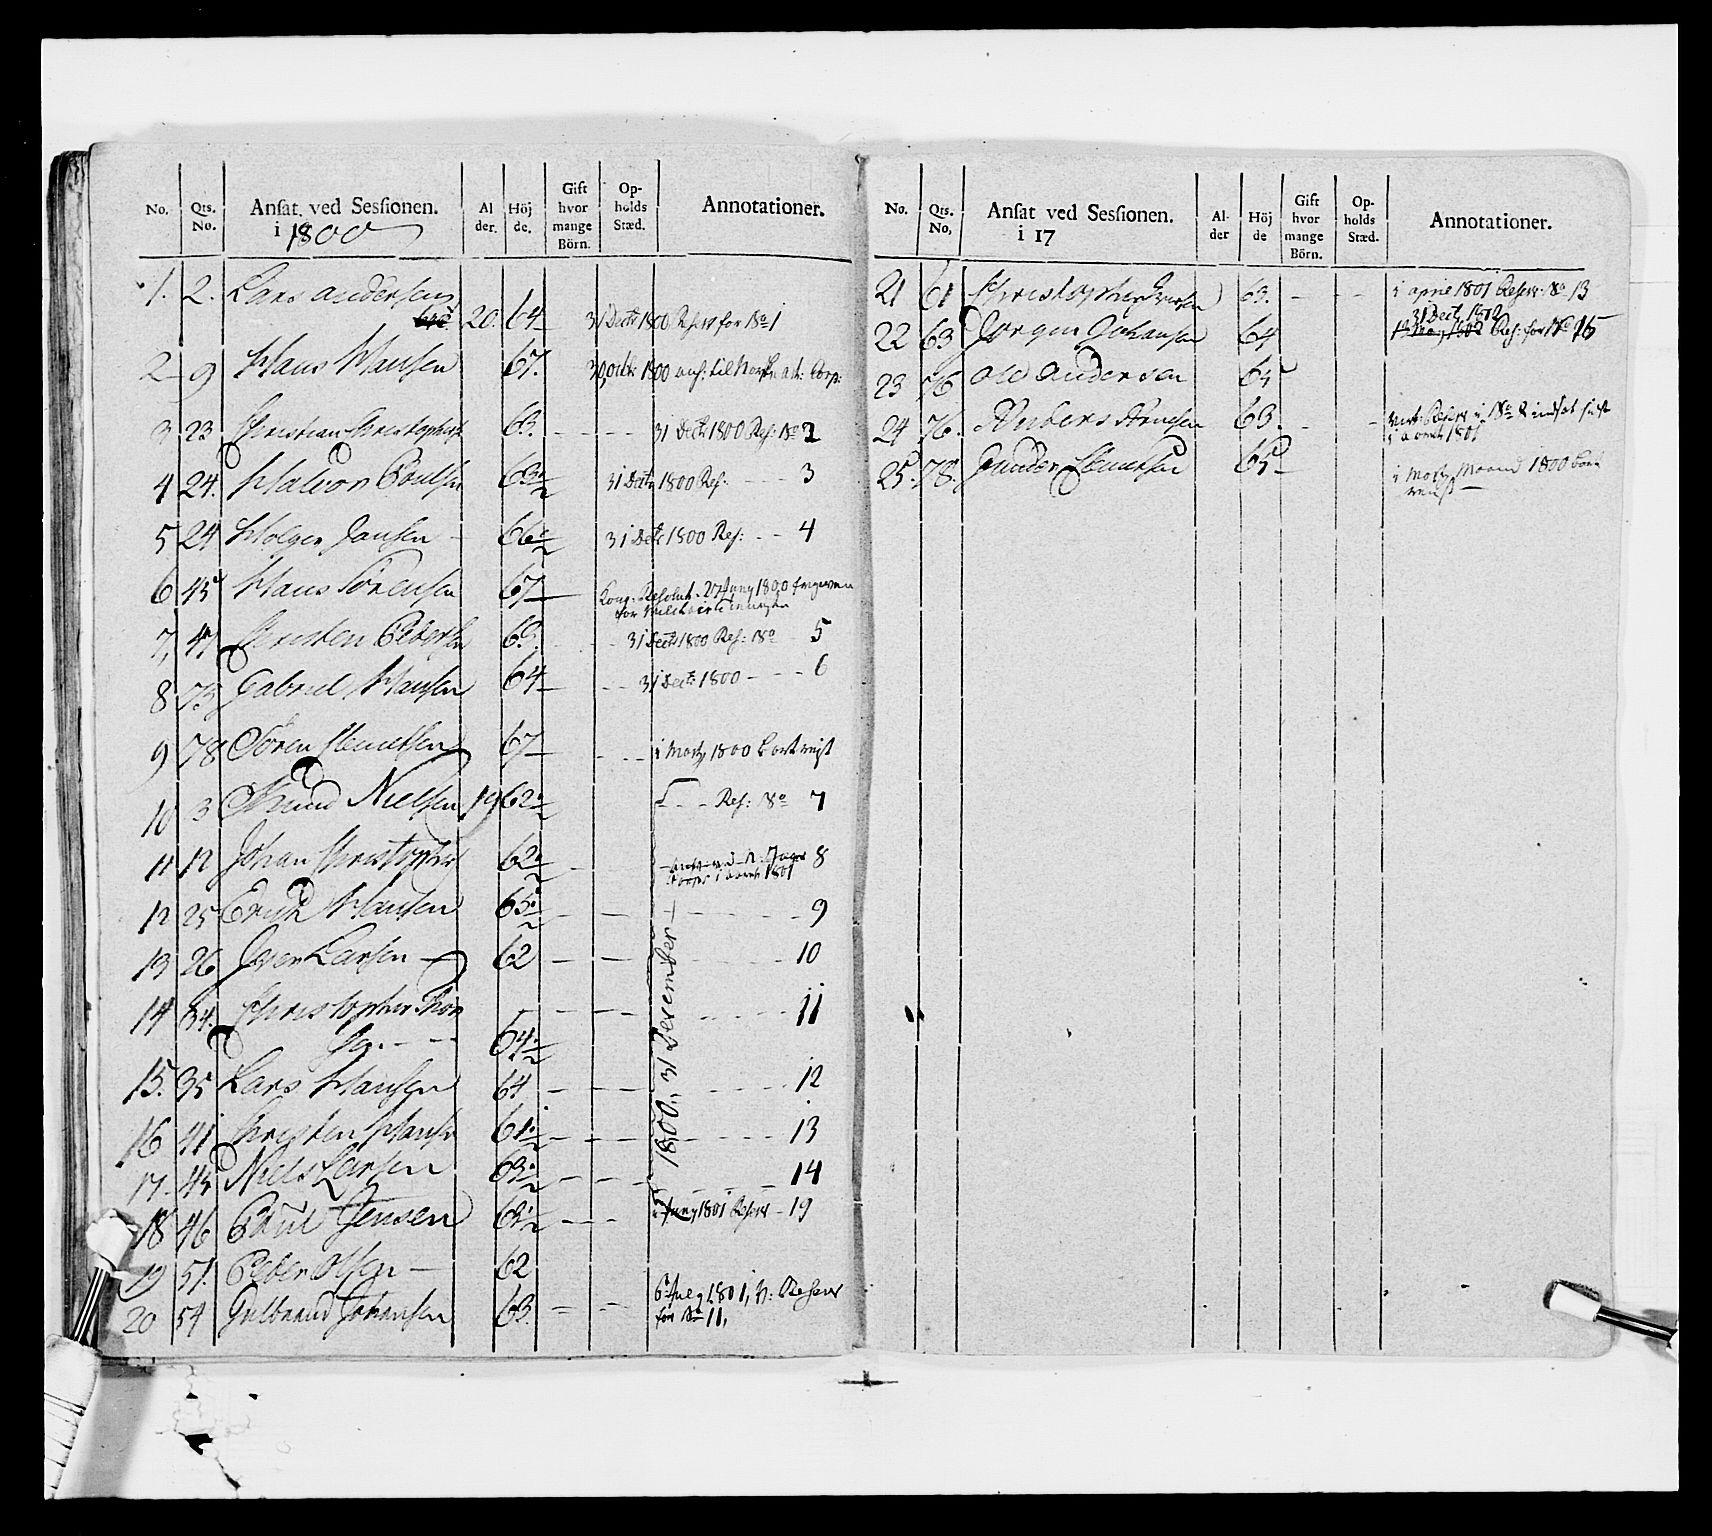 No. Qts. No. Ansat. ved Sessionen. i 1800 Al der. Höj de. Gift hvor mange Börn. Op- holds Stæd. Annotationer.
1. 2. Lars Andersen
20. 64 31 Decbr 1800 Reserv for No 1
2 9 Hans Hansen 67. 1800 ans: til Norske Corps:
3 23 Christian Christophers 63. 31 Decbr 1800 Res: No 2
4 24. Halvor Poulsen 63 1/2 31 Decbr 1800 Res: 3
5 24 Holger Jansen 66 1/2 31 Decbr 1800 Res: 4
6 45 Hans Sørensen 67 Kong. Resolut. 27 Juny 1800 frigiven
for
7, 47 Christen Pedersen 63. 31 Decbr 1800 Res: No 5
8 73 Gabriel Hansen 64 31 Decbr 1800 6
9 78 Søren Knudsen 67 i 1800 bort rejst
10 3 Knud Nielsen 19 62 1/2 Res: No 7
11 12 Johan Christopher 62 1/2 8
i aaret 1801
12 25 Erich Hansen 63 1/2 9
13 26 Iver Larsen 62 10
14 34. Christopher Thor 11
sen. 64 1/2
15. 35 Lars Hansen 64 12
16 41 Christen Hansen 61 1/2 13
17. 45 Niels Larsen 63 1/2 14
1800. 31 December
18 46 Poul Jensen 63 1/2 Juny 1801 Reserv 19
19 51. Peder Olsen 62
20 54 Gulbrand Johansen 63. 6 July 1801, Reserv
for No 11,
No. Qts. No, Ansat ved Sessionen. i 17 Al- der Höj de Gift hvor mange Börn. Op- holds Stæd. Annotationer.
21 61 Christopher Iversen 63. i april 1801 Reserv: No 13
31 Decb. 1802
22 63 Jørgen Johansen 64 1802 Res: for No 15
23 76 Ole Andersen 64
24 76. Anders Knudsen 63. Reserv No 2 indsat sidst
i aaret 1801
25. 78. Gunder Knudsen 65 i Maaned 1800 bort
rejst